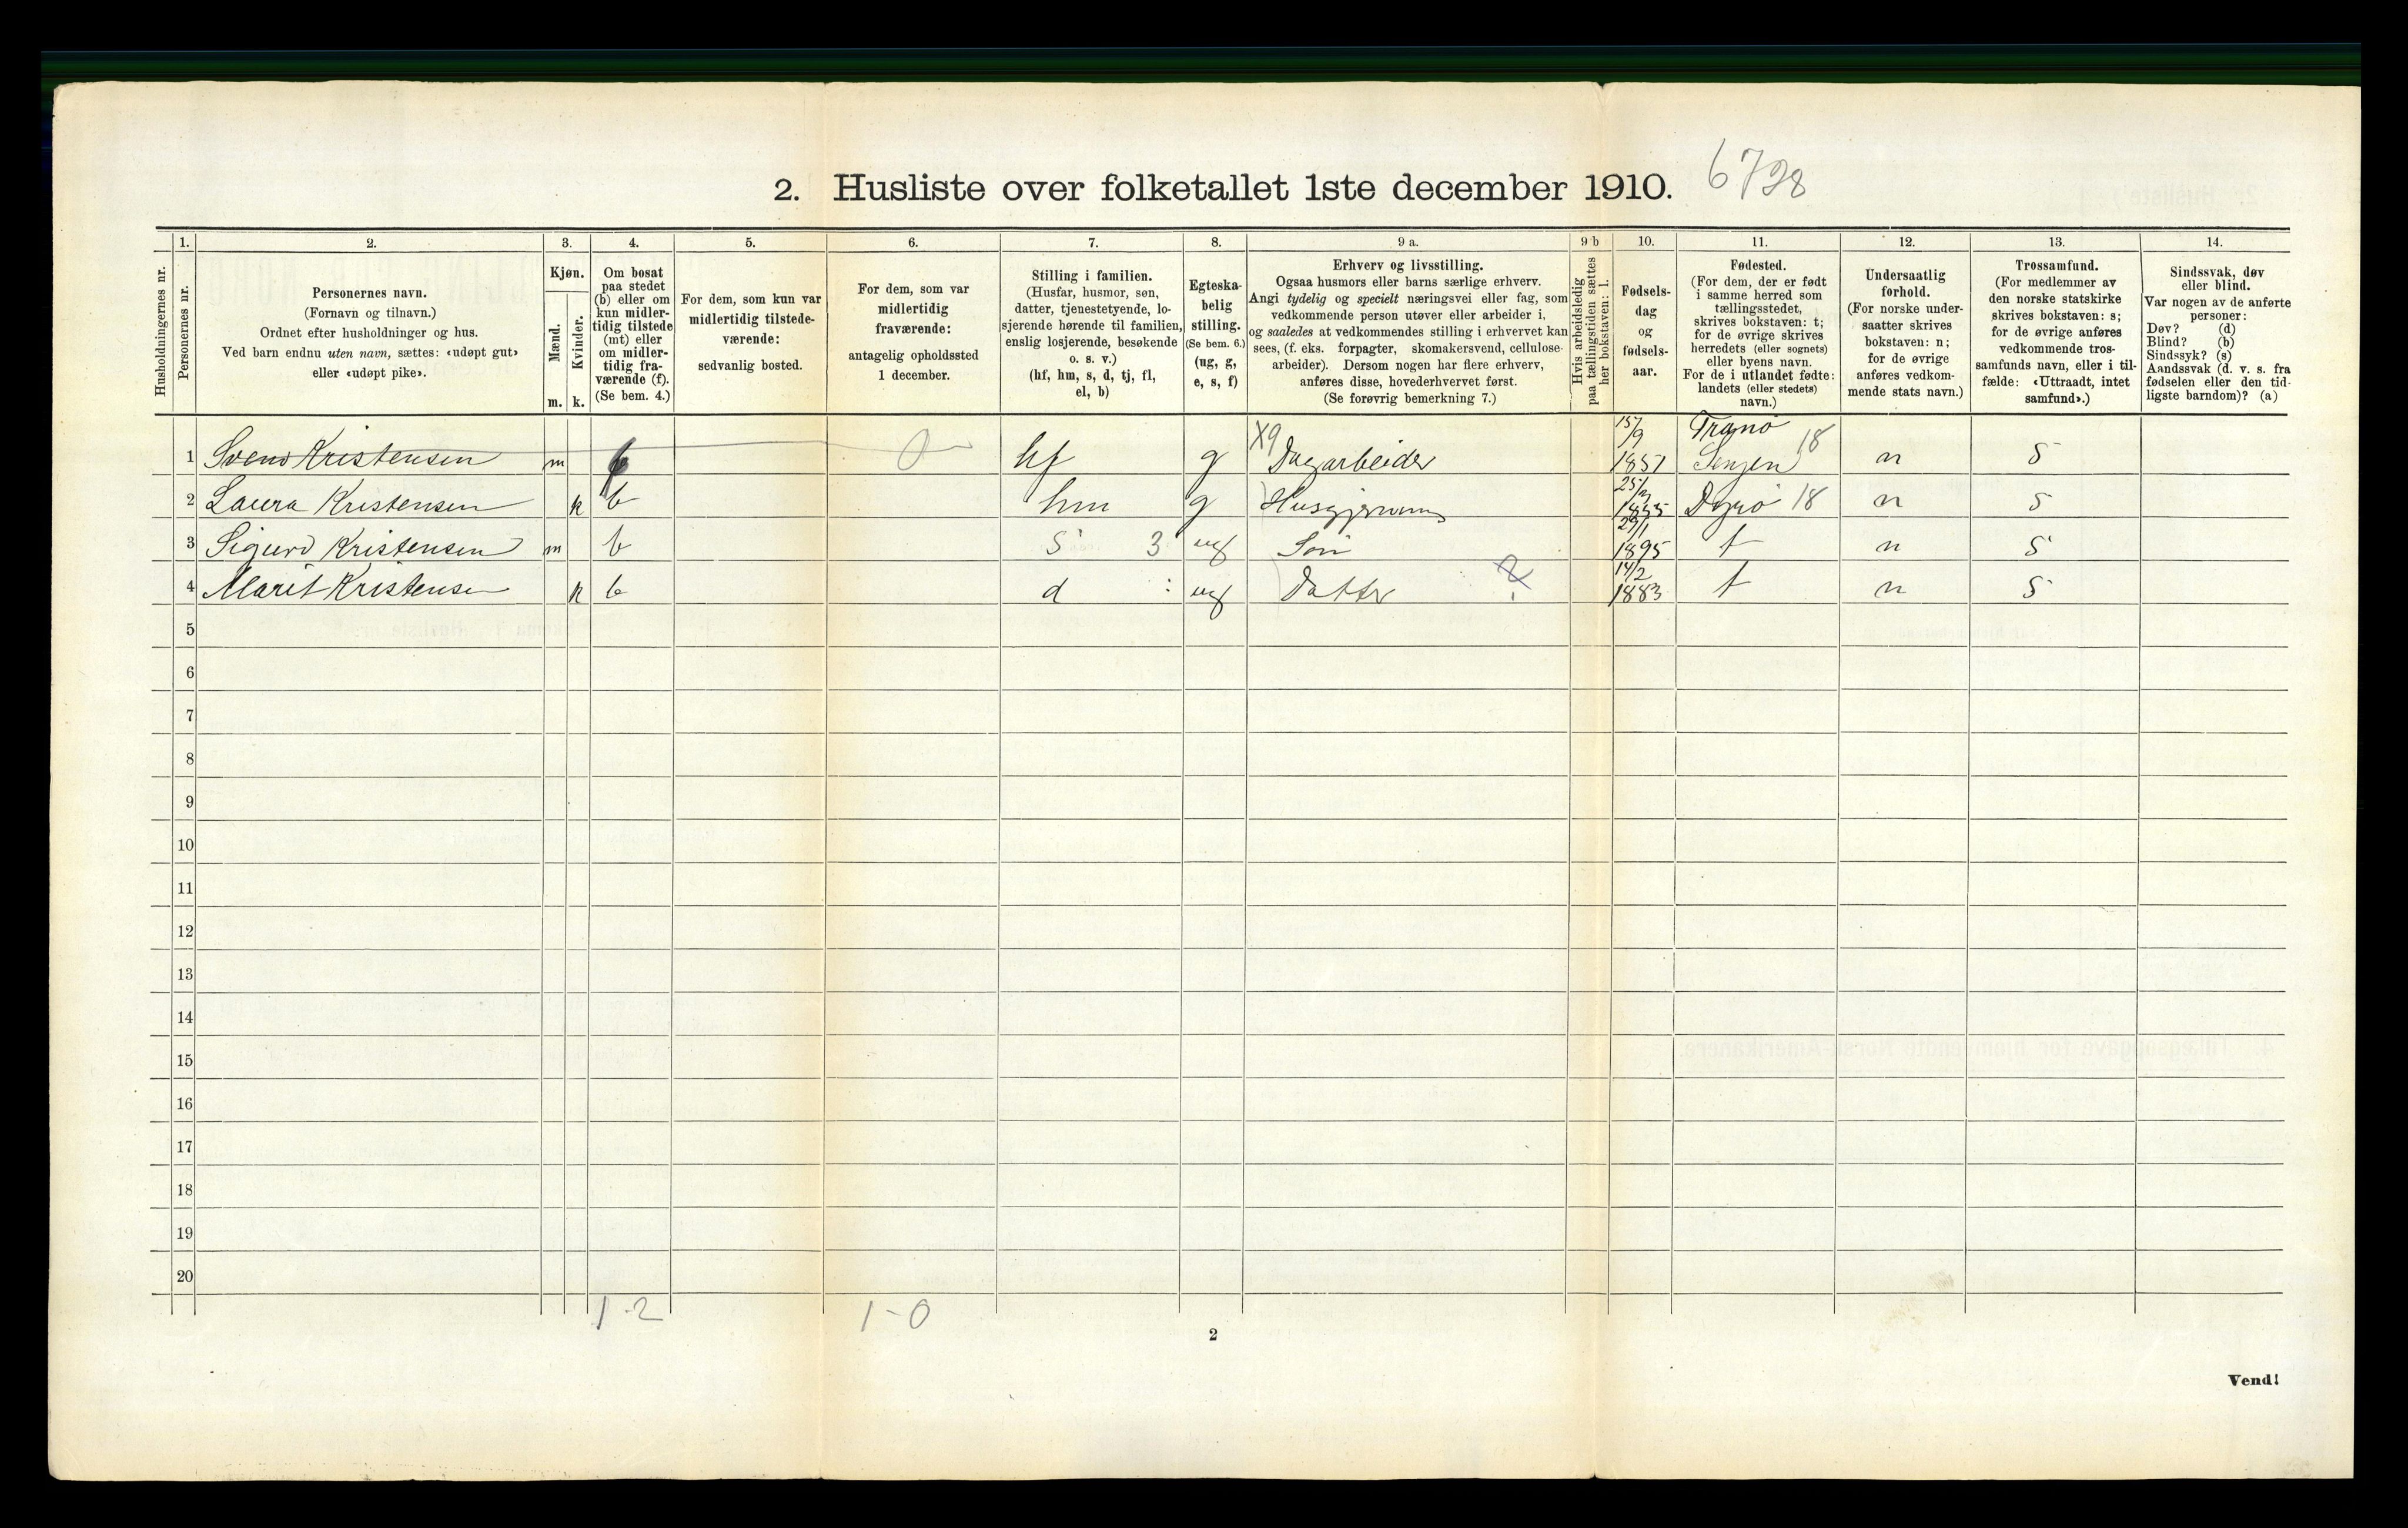 2. Husliste over folketallet 1ste december 1910. 6798
Husholdningernes nr.
1. 2. 3. 4. 5. 6. 7. 8. 9 a. 9 b 10. 11. 12. 13. 14.
Personernes nr.
Personernes navn.
(Fornavn og tilnavn.)
Ordnet efter husholdninger og hus.
Ved barn endnu uten navn, sættes: «udøpt gut»
eller «udøpt pike».
Kjøn.
Mænd.
Kvinder.
m. k.
Om bosat
paa stedet
(b) eller om
kun midler-
tidig tilstede
(mt) eller
om midler-
tidig fra-
værende (f).
(Se bem. 4.)
For dem, som kun var
midlertidig tilstede-
værende:
sedvanlig bosted.
For dem, som var
midlertidig
fraværende:
antagelig opholdssted
1 december.
Stilling i familien.
(Husfar, husmor, søn,
datter, tjenestetyende, lo-
sjerende hørende til familien,
enslig losjerende, besøkende
o. s. v.)
(hf, hm, s, d, tj, fl,
el, b)
Egteska-
belig
stilling.
(Se bem. 6.)
(ug, g,
e, s, f)
Erhverv og livsstilling.
Ogsaa husmors eller barns særlige erhverv.
Angi tydelig og specielt næringsvei eller fag, som
vedkommende person utøver eller arbeider i,
og saaledes at vedkommendes stilling i erhvervet kan
sees, (f. eks. forpagter, skomakersvend, cellulose-
arbeider). Dersom nogen har flere erhverv,
anføres disse, hovederhvervet først.
(Se forøvrig bemerkning 7.)
Hvis arbeidsledig
paa tællingstiden sættes
her bokstaven: l.
Fødsels-
dag
og
fødsels-
aar.
Fødested.
(For dem, der er født
i samme herred som
tællingsstedet,
skrives bokstaven: t;
for de øvrige skrives
herredets (eller sognets)
eller byens navn.
For de i utlandet fødte:
landets (eller stedets)
navn.)
Undersaatlig
forhold.
(For norske under-
saatter skrives
bokstaven: n;
for de øvrige
anføres vedkom-
mende stats navn.)
Trossamfund.
(For medlemmer av
den norske statskirke
skrives bokstaven: s;
for de øvrige anføres
vedkommende tros-
samfunds navn, eller i til-
fælde: «Uttraadt, intet
samfund».)
Sindssvak, døv
eller blind.
Var nogen av de anførte
personer:
Døv? (d)
Blind? (b)
Sindssyk? (s)
Aandssvak (d. v. s. fra
fødselen eller den tid-
ligste barndom)? (a)
1 Svend Kristensen m hf g X9 Dagarbeider 15/9 1851 Tranø Senjen 18 n s
2 Laura Kristensen k b hm g 1855 Dyrø 18 n s
3 Sigurd Kristensen m b s 3 ug Søn 29/1 1895 t n s
4 Marit Kristensen k b d : ug Datter 14/2 1883 t n s
5
6
7
8
9
10
11
12
13
14
15
16
17
18
19
20
1-2 1-0
2
Vend!